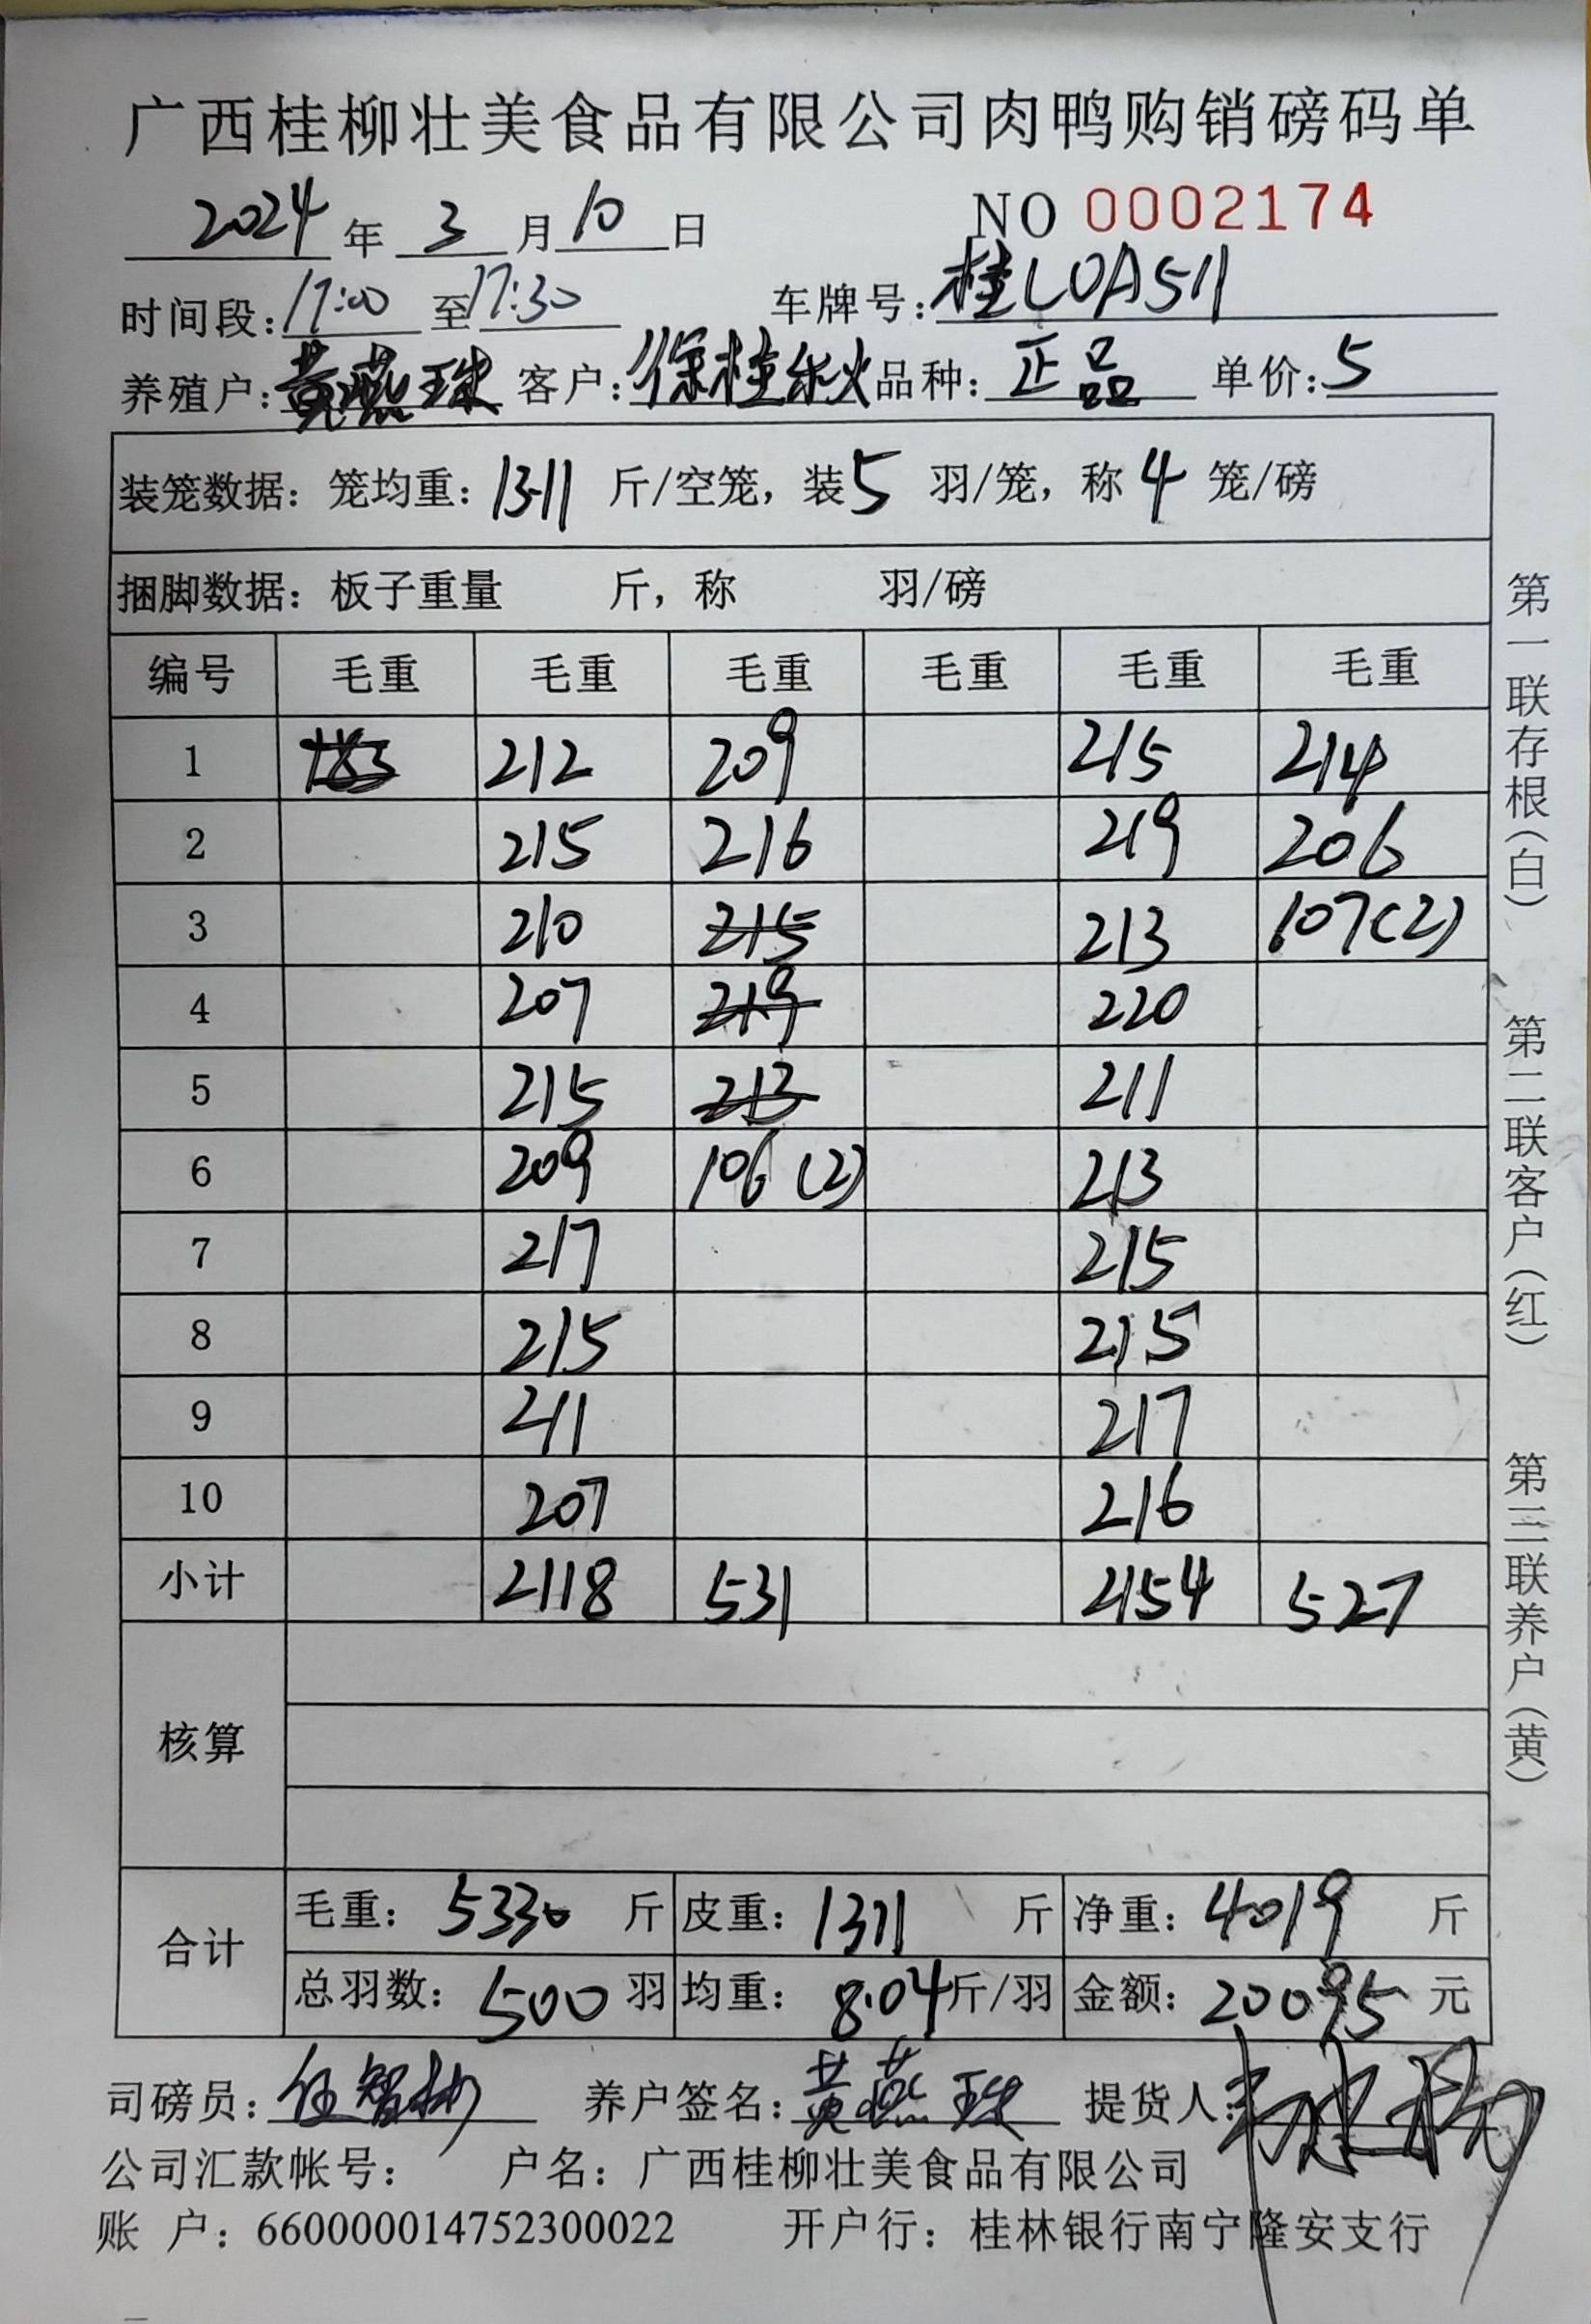 广西桂柳壮美食品有限公司肉鸭购销磅码单
2024 年 3 月 10 日 NO 0002174
时间段：17:00 至 17:30 车牌号：桂L0A511
养殖户：黄燕珠 客户：徐桂秋 品种：正品 单价：5
装笼数据：笼均重：13.11 斤/空笼，装 5 羽/笼，称 4 笼/磅
捆脚数据：板子重量 斤，称 羽/磅
编号 毛重 毛重 毛重 毛重 毛重 毛重
1 183 212 209 215 214
2 215 216 219 206
3 210 215 213 107(2)
4 207 219 220
5 215 213 211
6 209 106(2) 213
7 217 215
8 215 215
9 211 217
10 207 216
小计 2118 531 2154 527
核算
合计
毛重：5330 斤 皮重：1311 斤 净重：4019 斤
总羽数：500 羽 均重：8.04 斤/羽 金额：20095 元
司磅员：任智彬 养户签名：黄燕珠 提货人：
公司汇款帐号： 户名：广西桂柳壮美食品有限公司
账 户：660000014752300022 开户行：桂林银行南宁隆安支行
第一联存根（白） 第二联客户（红） 第三联养户（黄）